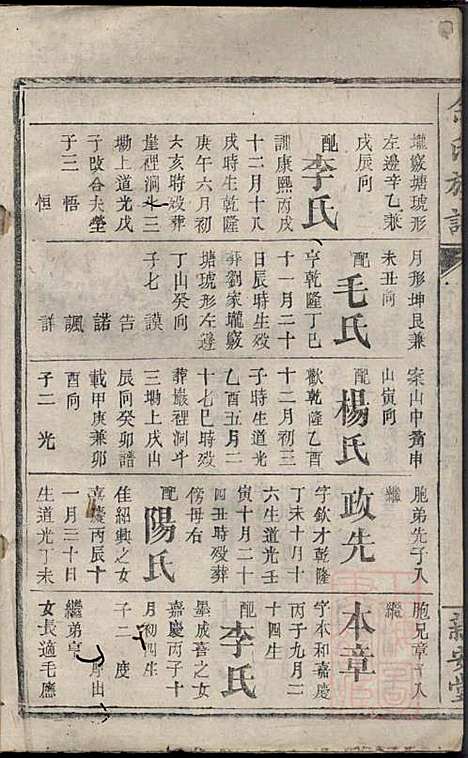 壠竅塘琥形
左邊辛乙兼
戌辰向
配李氏
訓康熙丙戌
十二月十八
戌時生乾隆
庚午六月初
六亥時歿葬
崖裡洞斗三
坳上道光戊
子改合夫塋
子三 悟
恒
月形坤艮兼
未丑向
配毛氏
亨乾隆丁巳
十一月二十
日辰時生歿
葬劉家壠竅
塘琥形左邊
丁山癸向
子七 謨
告
諾
諷
詳
案山中嶺申
山寅向
配楊氏
歡乾隆乙酉
十二月初三
子時生道光
乙酉五月二
十七巳時歿
葬巖裡洞斗
三坳上戌山
辰向癸卯譜
載甲庚兼卯
酉向
子二 光
胞弟先子入
繼
政先
字欽才乾隆
丁未十月十
六生道光壬
寅十月二十
四丑時歿葬
傍母右
配陽氏
隹紹興之女
嘉慶丙辰十
一月三十日
生道光丁未
胞兄章子入
繼
本章
字本和嘉慶
丙子九月二
十四生
配李氏
墨成喜之女
嘉慶丙子十
月初四生
子二 度
繼弟亨
女長適毛應